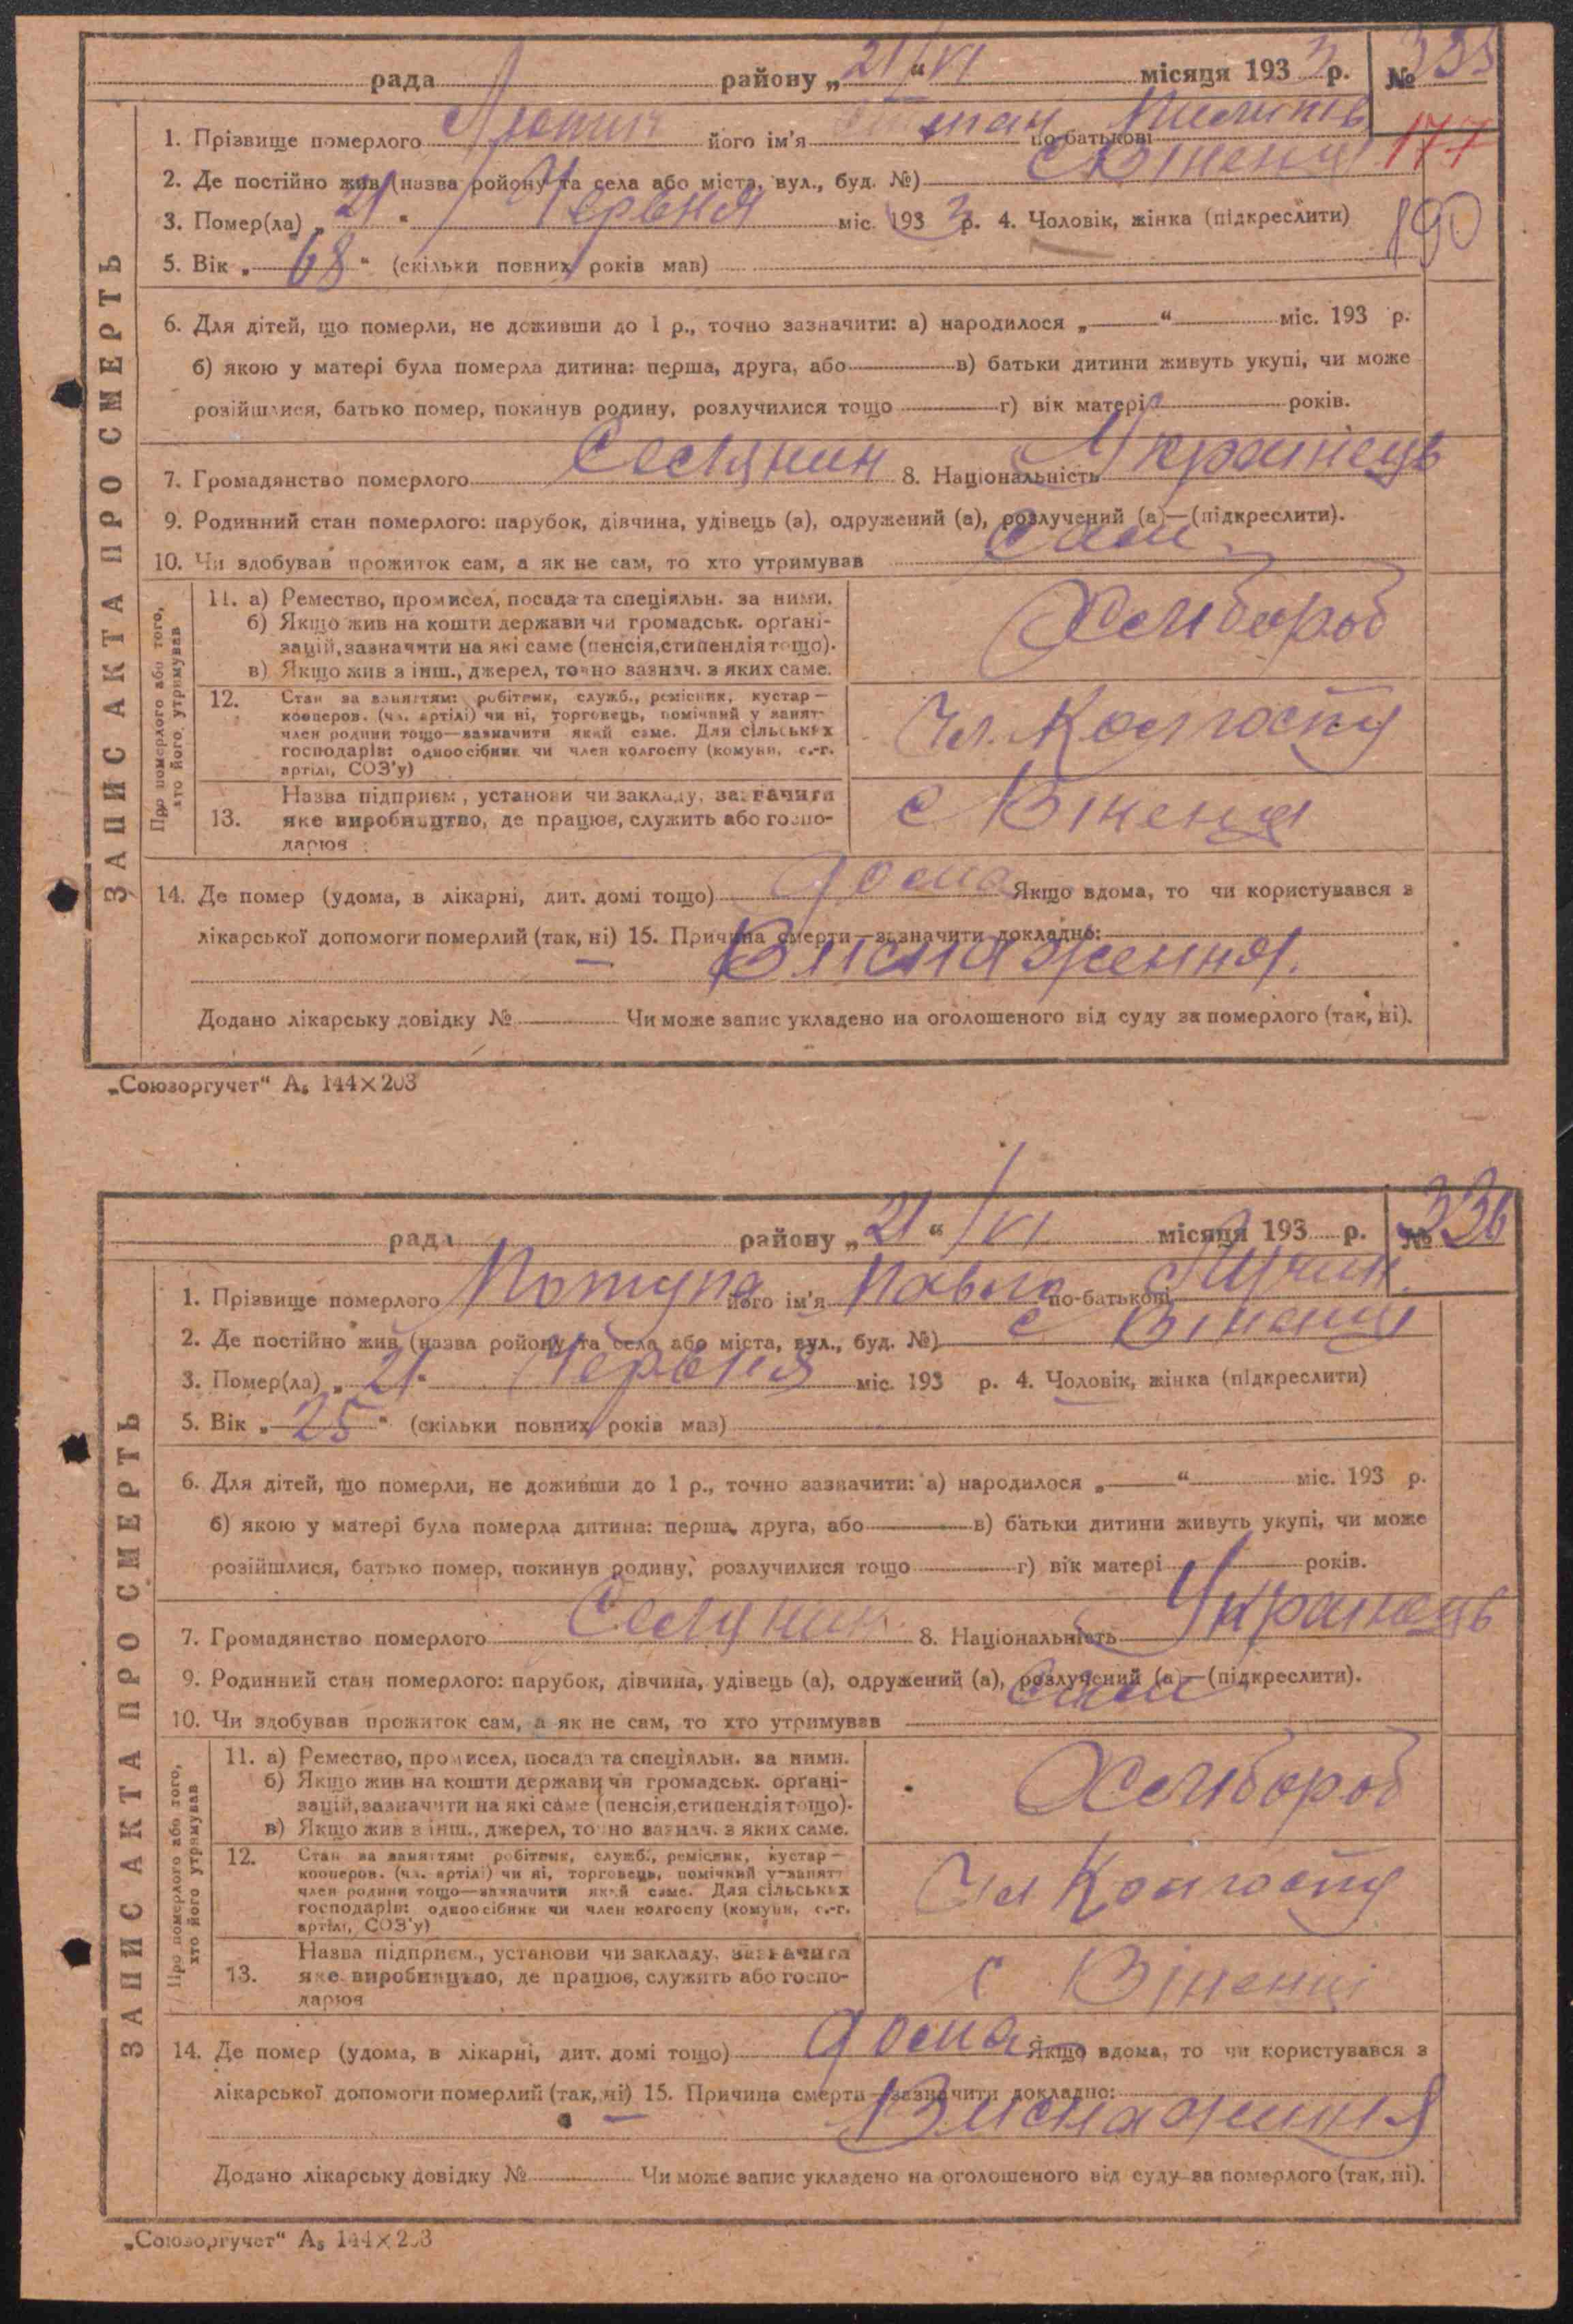 рада району „21“ VI місяця 1933 р. № 335
1. Прізвище померлого Лютик його ім'я по-батькові
177
2. Де постійно жив (назва ройону та села або міста, вул., буд. №) с Віненці
3. Помер(ла) „21“ Червня міс. 1933 р. 4. Чоловік, жінка (підкреслити)
190
5. Вік „68“ (скільки повних років мав)
6. Для дітей, що померли, не доживши до 1 р., точно зазначити: а) народилося „ “ міс. 193 р.
б) якою у матері була померла дитина: перша, друга, або в) батьки дитини живуть укупі, чи може
розійшлися, батько помер, покинув родину, розлучилися тощо г) вік матері років.
7. Громадянство померлого Селянин 8. Національність Українець
9. Родинний стан померлого: парубок, дівчина, удівець (а), одружений (а), розлучений (а)—(підкреслити).
10. Чи здобував прожиток сам, а як не сам, то хто утримував Сам
ЗАПИС АКТА ПРО СМЕРТЬ
Про померлого або того, хто його утримував
11. а) Ремество, промисел, посада та спеціяльн. за ними.
б) Якщо жив на кошти держави чи громадськ. орґані-
зацій, зазначити на які саме (пенсія, стипендія тощо).
в) Якщо жив з інш., джерел, точно зазнач. з яких саме.
Хлибороб
12. Стан за заняттям: робітник, служб., ремісник, кустар—
кооперов. (чл. артілі) чи ні, торговець, помічний у занят-
член родини тощо—зазначити який саме. Для сільських
господарів: одноосібник чи член колгоспу (комуни, с.-г.
артілі, СОЗ'у)
Чл. Колгоспу
13. Назва підприєм., установи чи закладу, зазначити
яке виробництво, де працює, служить або госпо-
дарює
с Віненці
14. Де помер (удома, в лікарні, дит. домі тощо) дома Якщо вдома, то чи користувався з
лікарської допомоги померлий (так, ні) 15. Причина смерти—зазначити докладно:
Виснаження.
Додано лікарську довідку № Чи може запис укладено на оголошеного від суду за померлого (так, ні).
„Союзоргучет“ А₅ 144×203
рада району „21“ VI місяця 193 р. № 336
1. Прізвище померлого Потупа його ім'я Павло по-батькові
2. Де постійно жив (назва ройону та села або міста, вул., буд. №) с Віненці
3. Помер(ла) „21“ Червня міс. 193 р. 4. Чоловік, жінка (підкреслити)
5. Вік „25“ (скільки повних років мав)
6. Для дітей, що померли, не доживши до 1 р., точно зазначити: а) народилося „ “ міс. 193 р.
б) якою у матері була померла дитина: перша, друга, або в) батьки дитини живуть укупі, чи може
розійшлися, батько помер, покинув родину, розлучилися тощо г) вік матері років.
7. Громадянство померлого Селянин 8. Національність Українець
9. Родинний стан померлого: парубок, дівчина, удівець (а), одружений (а), розлучений (а)—(підкреслити).
10. Чи здобував прожиток сам, а як не сам, то хто утримував Сам
ЗАПИС АКТА ПРО СМЕРТЬ
Про померлого або того, хто його утримував
11. а) Ремество, промисел, посада та спеціяльн. за ними.
б) Якщо жив на кошти держави чи громадськ. орґані-
зацій, зазначити на які саме (пенсія, стипендія тощо).
в) Якщо жив з інш., джерел, точно зазнач. з яких саме.
Хлибороб
12. Стан за заняттям: робітник, служб., ремісник, кустар—
кооперов. (чл. артілі) чи ні, торговець, помічний у занят-
член родини тощо—зазначити який саме. Для сільських
господарів: одноосібник чи член колгоспу (комуни, с.-г.
артілі, СОЗ'у)
Чл Колгоспу
13. Назва підприєм., установи чи закладу, зазначити
яке виробництво, де працює, служить або госпо-
дарює
с Віненці
14. Де помер (удома, в лікарні, дит. домі тощо) дома Якщо вдома, то чи користувався з
лікарської допомоги померлий (так, ні) 15. Причина смерти—зазначити докладно:
Виснаження
Додано лікарську довідку № Чи може запис укладено на оголошеного від суду за померлого (так, ні).
„Союзоргучет“ А₅ 144×203